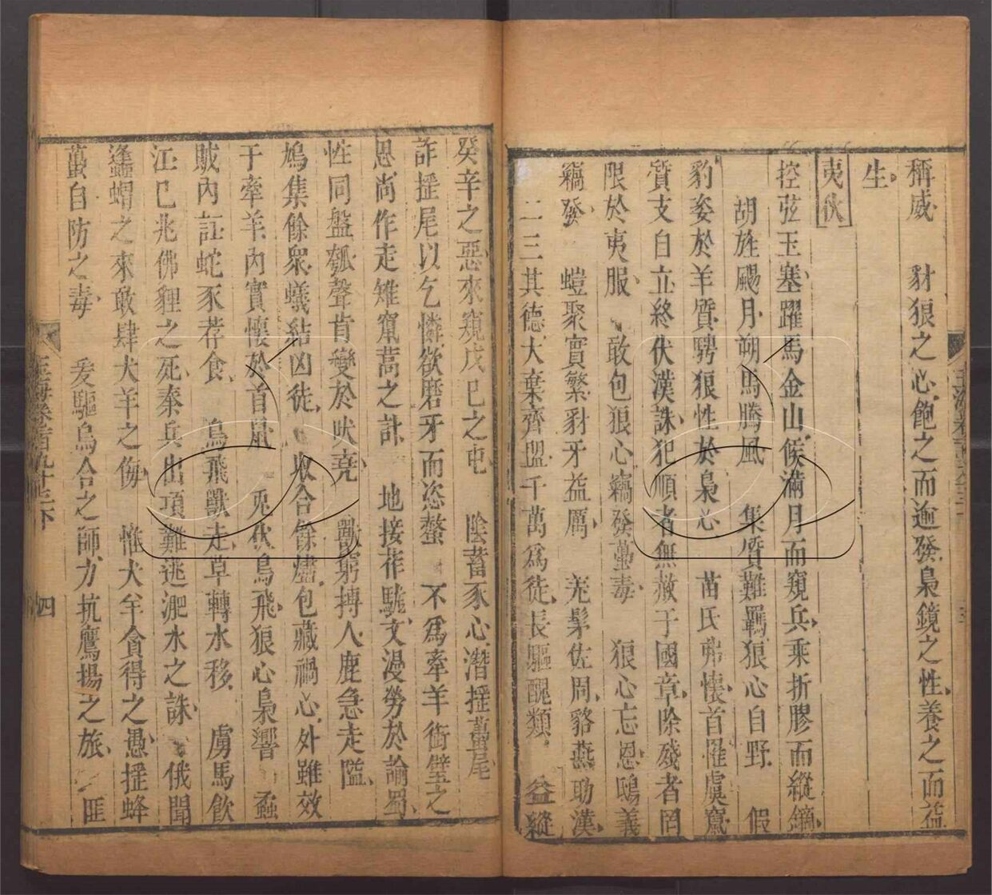 稱威　豺狼之心飽之而逾發梟鏡之性養之而益
生
夷伙
控弦玉塞躍馬金山候滿月而窺兵乘折膠而縱鏑
胡旌颺月朔馬騰風　集質難羈狼心自野　假
豹姿於羊質騁狼性於梟心　苗氏弗懷首罹虞竄
質支自立終伏漢誅犯順者無赦于國章除殘者罔
限於夷服　敢包狼心竊發蠆毒　狼心忘恩鴟義
竊發　螘聚實繁豺牙益厲　羌髳佐周貉燕助漢
二三其德大棄齊盟千萬爲徒長驅醜類　益縱
癸辛之惡來窺戊巳之屯　陰蓄豕心潛揺蠆尾
詐揺尾以乞憐欲磨牙而恣螫　不爲牽羊銜璧之
恩尚作走雉竄蒿之計　地接莋騩文漫勞於諭蜀
性同盤瓠聲肯變於吠堯　獸窮搏人鹿急走隘
鳩集餘衆蟻結凶徒　收合餘燼包藏禍心外雖效
于牽羊内實懷於首鼠　兎伏鳥飛狼心梟響　蝥
賊内訌蛇豕荐食　鳥飛獸走草轉水移　虜馬飲
江巳兆佛貍之死秦兵出項難逃淝水之誅　俄聞
逢蝟之來敢肆犬羊之侮　惟犬羊貪得之愚揺蜂
蠆自防之毒　爰驅烏合之師力抗鷹揚之旅　匪
玉海卷二百九十三下
四